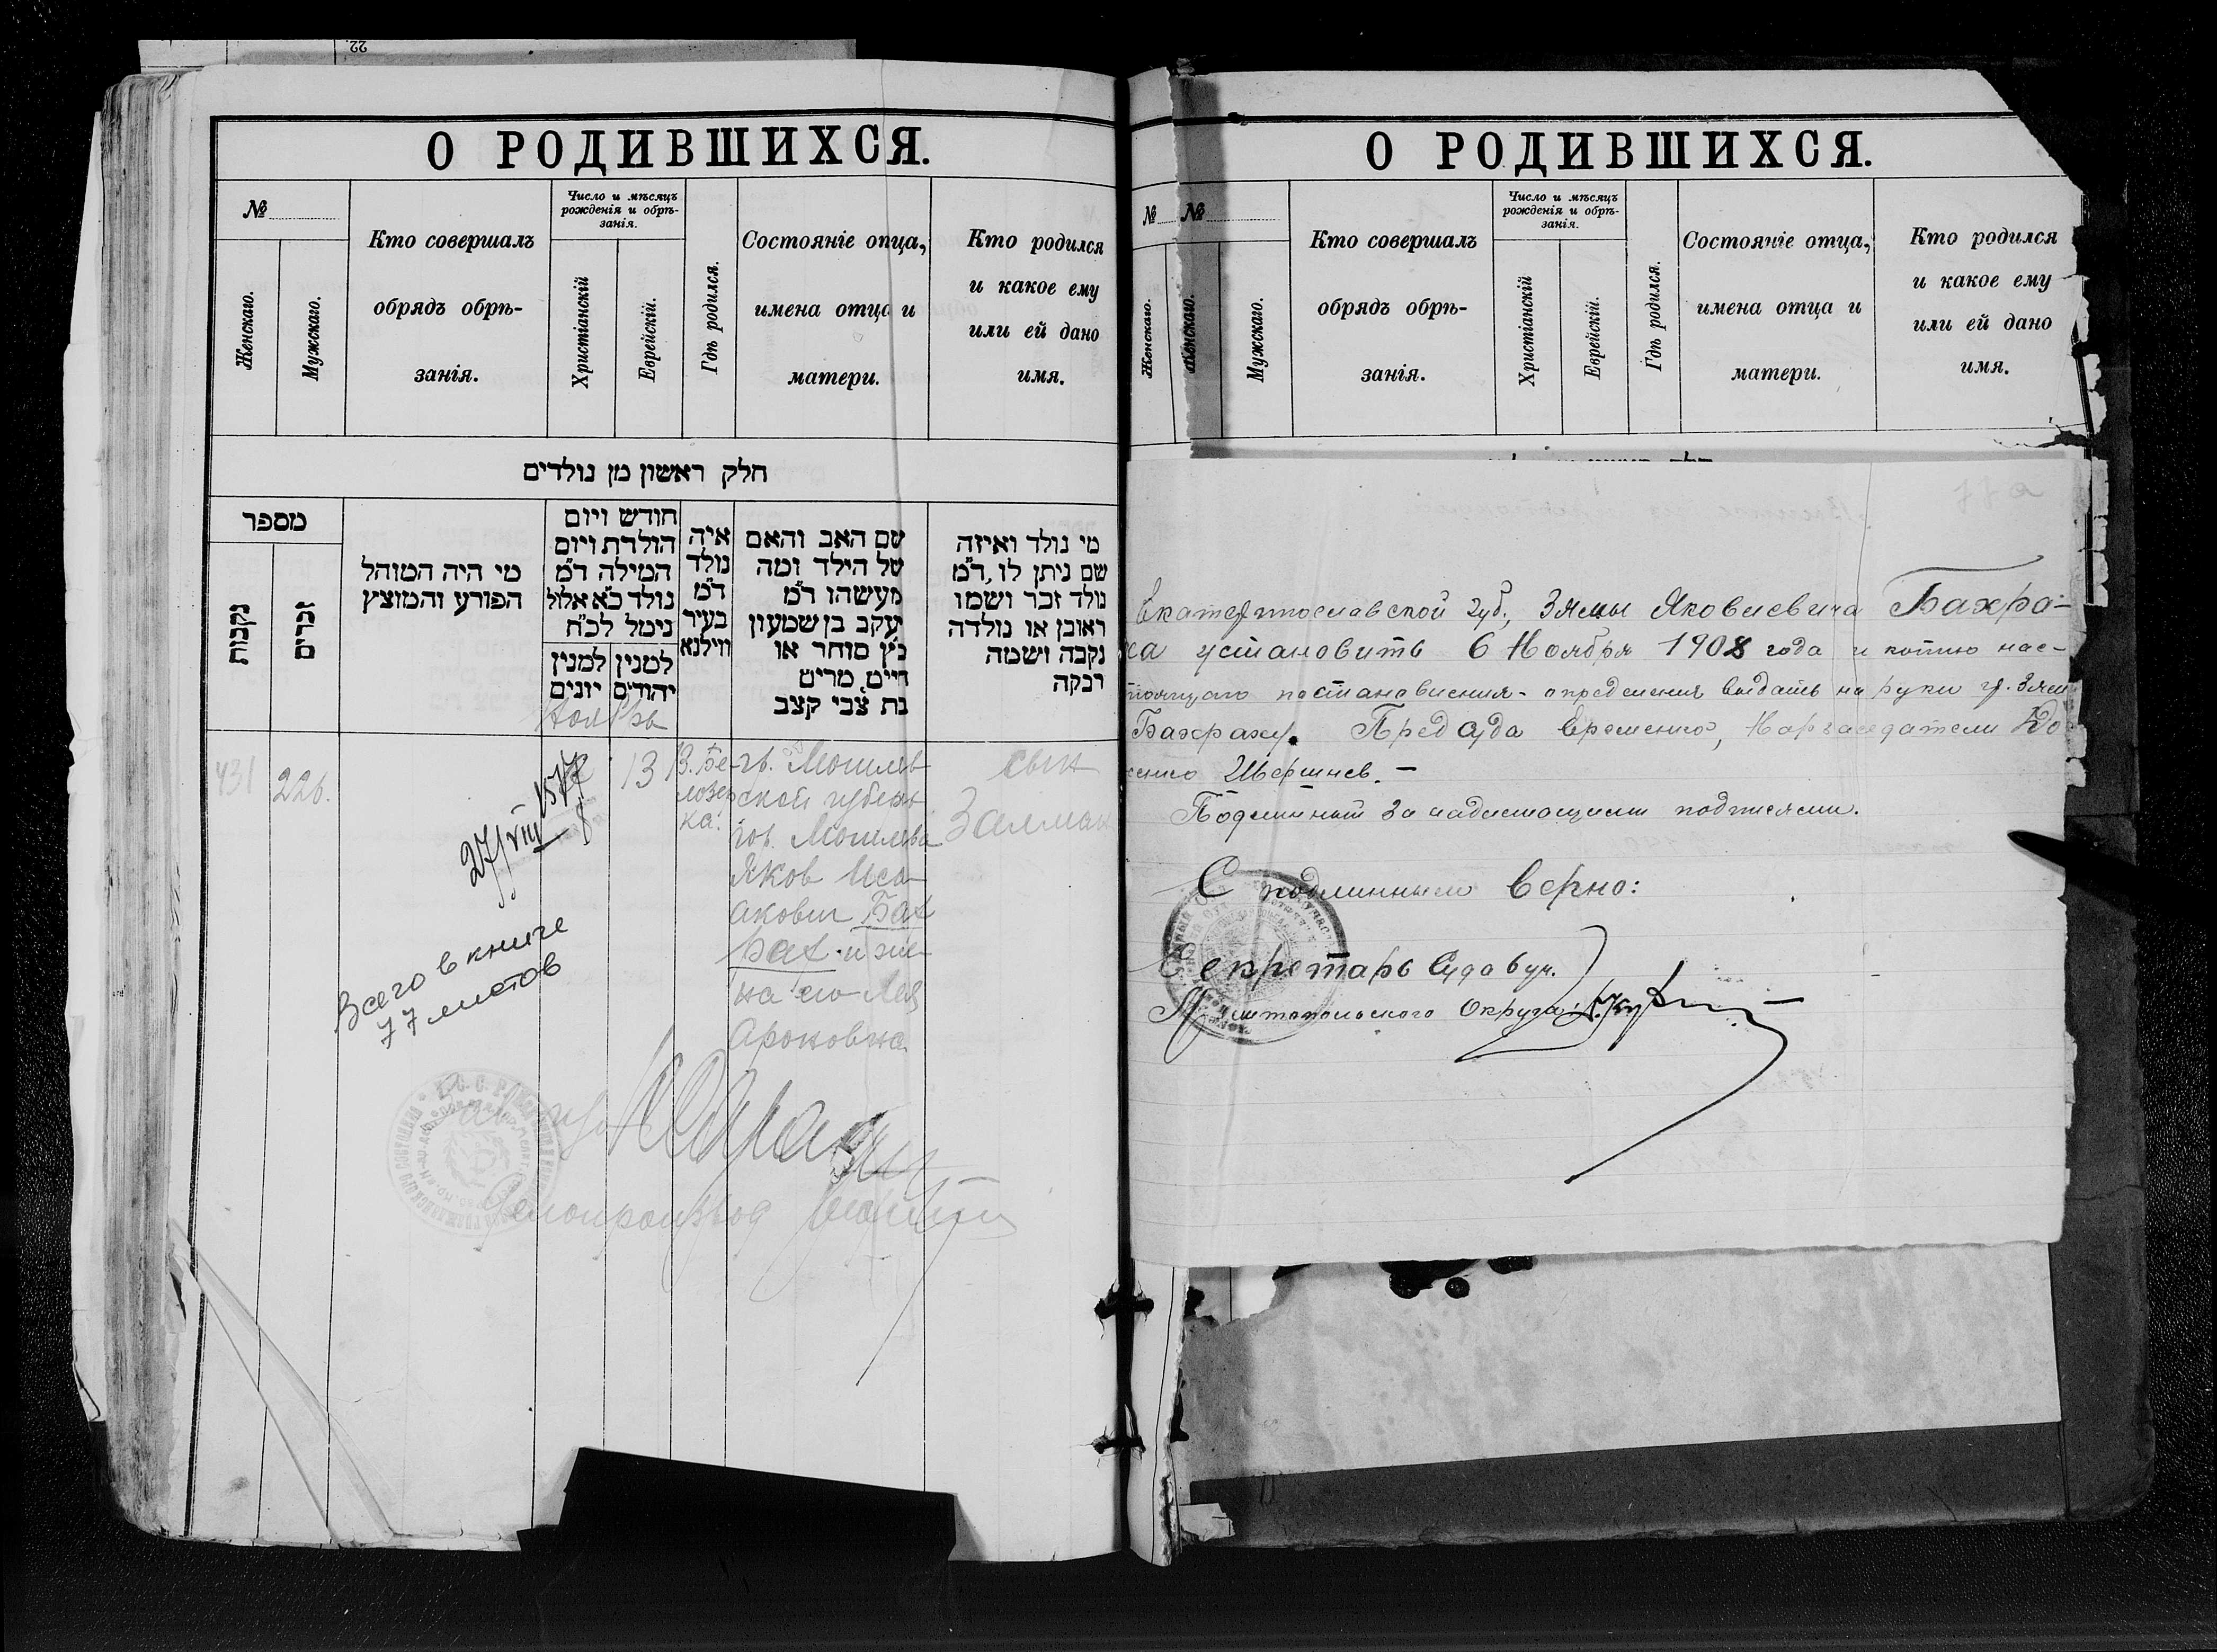 22.
О РОДИВШИХСЯ.
№
Женскаго.
Мужскаго.
Кто совершалъ
обрядъ обрѣ-
занія.
Число и мѣсяцъ
рожденія и обрѣ-
занія.
Христіанскій
Еврейскій.
Гдѣ родился.
Состояніе отца,
имена отца и
матери.
Кто родился
и какое ему
или ей дано
имя.
חלק ראשון מן נולדים
מספר
נקבות
זכרים
מי היה המוהל
הפורע והמוצץ
חודש ויום
הולדת ויום
המילה ד״מ
נולד כ״א אלול
נימל לכ״ח
למנין
יונים
למנין
יהודים
איה
נולד
ד״מ
בעיר
ווילנא
שם האב והאם
של הילד ומה
מעשהו ד״מ
יעקב בן שמעון
כ״ץ סוחר או
חייט, מרים
בת צבי קצב
מי נולד ואיזה
שם ניתן לו, ד״מ
נולד זכר ושמו
ראובן או נולדה
נקבה ושמה
רבקה
Ноябрь
431
226.
13
сын
Залман
гр. Могилев
ской губерн
гор. Могилева
Яков Иса-
акович Бах
рах и же-
на его Лея
Ароновна
27/VIII
Всего в книге
77 листов
О РОДИВШИХСЯ.
№
№
Женскаго.
Женскаго.
Мужскаго.
Кто совершалъ
обрядъ обрѣ-
занія.
Число и мѣсяцъ
рожденія и обрѣ-
занія.
Христіанскій
Еврейскій.
Гдѣ родился.
Состояніе отца,
имена отца и
матери.
Кто родился
и какое ему
или ей дано
имя.
Екатеринославской губ., Зямы Яковлевича Бахра-
ха установить 6 Ноября 1908 года и копию нас-
тоящаго постановления-определения выдать на руки гр. Зяме
Бахраху. Пред Суда Временко, Нарзаседатели
Подлинный за надлежащими подписями.
С подлинным верно:
Секретарь Суда 6 уч.
Мелитопольского Округа: